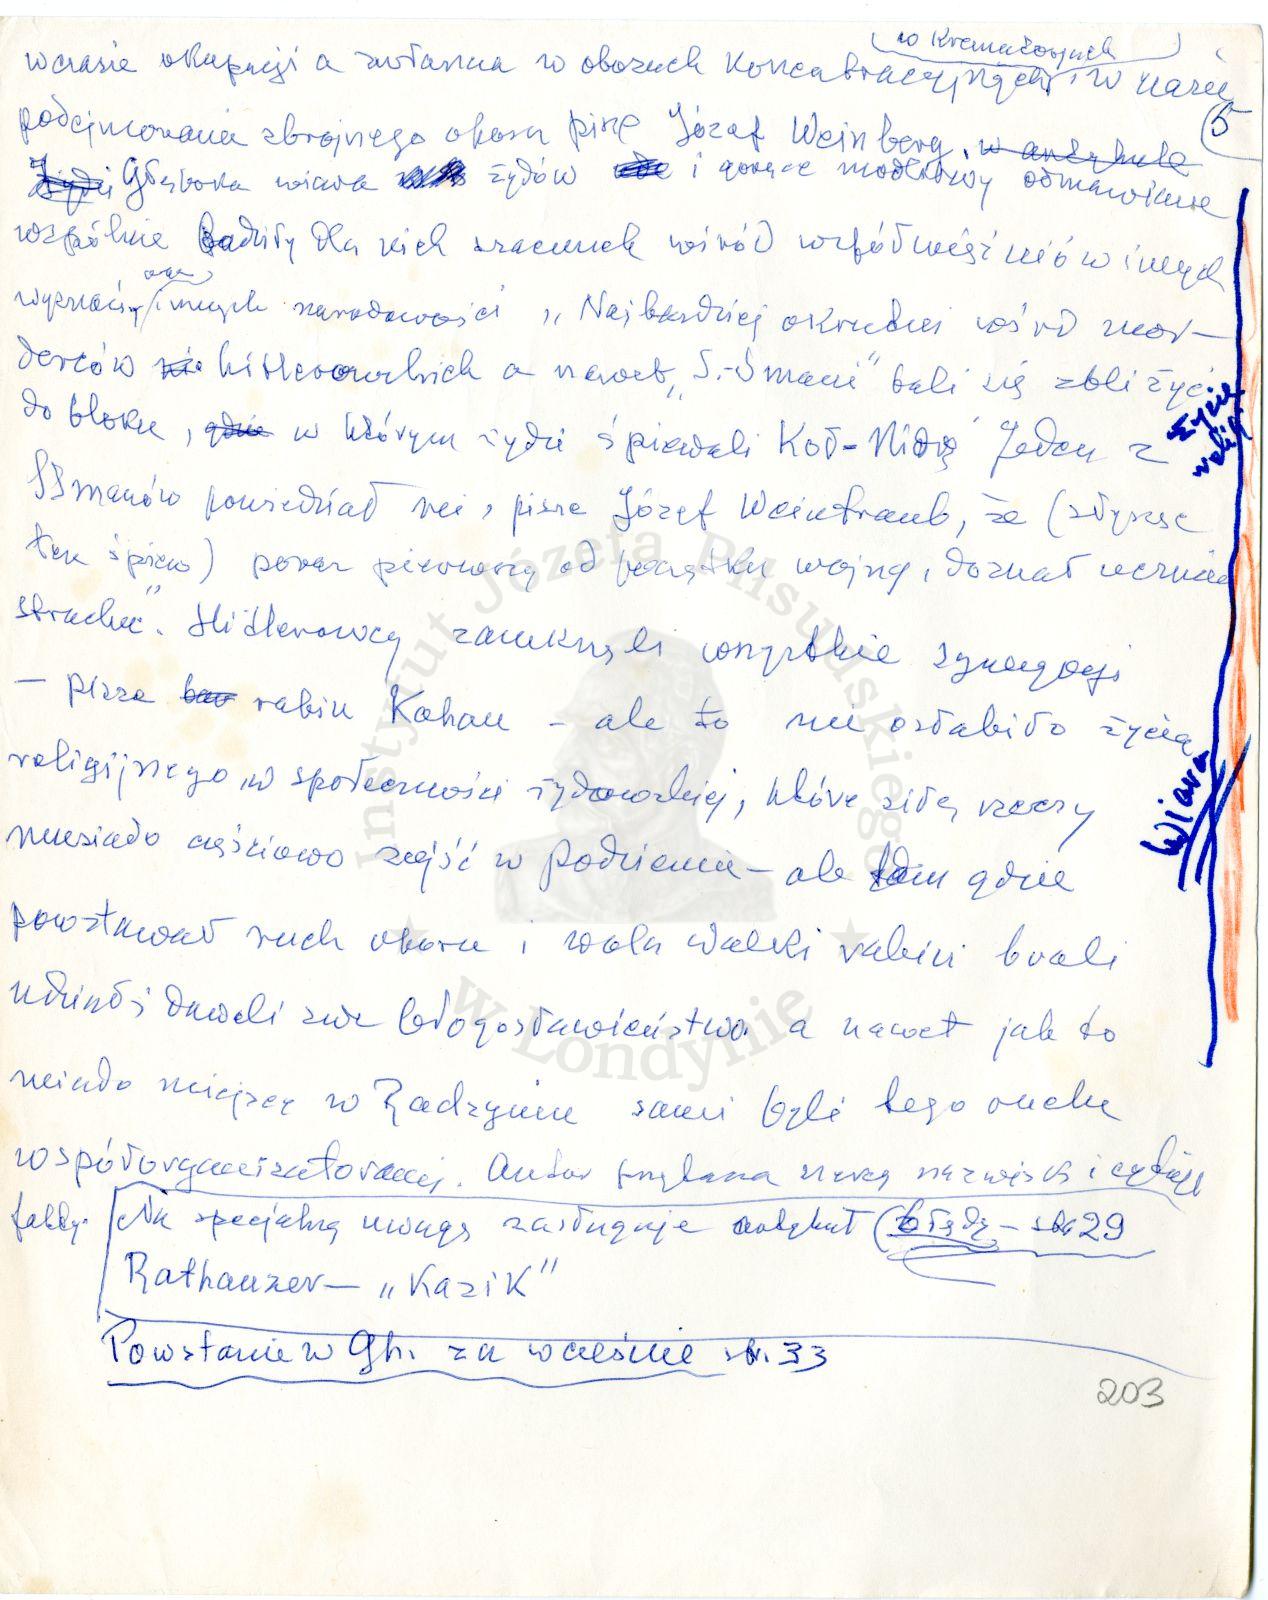 w Krematoryjnych
wczasie okupacji a zwłaszcza w obozach Koncetracyjnych, i w czasie
5
podejmowania zbrojnego oporu pisze Józef Weinberg, w artykule
Żydzi Głęboka wiara żydów i gorące modlitwy odmawiane
wspólnie budziły dla nich szacunek wśród współwięźniów innych
wyznań oraz innych narodowości „Najbardziej okrutni wśród mor-
derców hitlerowskich a nawet „S.-Smani" bali się zbliżyć
do bloku, gdzie w którym żydzi śpiewali Koł-Nidrę Jeden z
SSmanów powiedział mi, pisze Józef Weintraub, że (słysząc
ten śpiew) poraz pierwszy od początku wojny, doznał uczucia
strachu". Hitlerowcy zamknęli wszystkie synagogi
— pisze rabin Kahan — ale to nie osłabiło życia
religijnego w społeczności żydowskiej, które siłą rzeczy
musiało częściowo zejść w podziemie — ale tam gdzie
powstawał ruch oporu i wola walki rabini brali
udział i dawali swe błogosławieństwo a nawet jak to
miało miejsce w Radzyniu sami byli tego ruchu
współorganizatorami. Autor przytacza szereg nazwisk i cytuje
fakty. Na specjalną uwagę zasługuje artykuł (błędy — str 29
Rathauzer — „Kazik"
Powstanie w Gh. za wcześnie str. 33
Życie
relig.
Wiara
203
Instytut Józefa Piłsudskiego
w Londynie